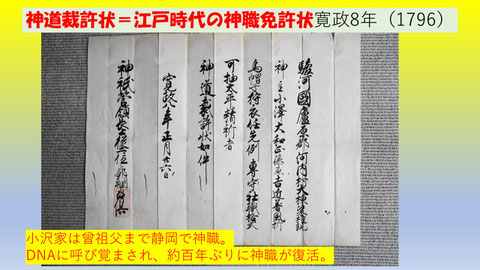 神道裁許状＝江戸時代の神職免許状寛政8年（1796）
駿河國廬原郡河内村大神
神主小澤大和正藤原吉近着風折
烏帽子狩衣任先例専守社職格式
可抽太平精祈者
神道裁許状如件
寛政八年正月廿六日
神祇管領長上従二位
小沢家は曾祖父まで静岡で神職。
DNAに呼び覚まされ、約百年ぶりに神職が復活。